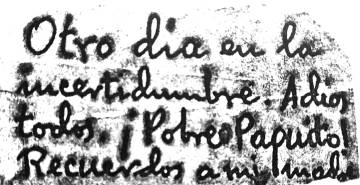 Otro dia en la
incertidumbre. Adios
todos. ¡Pobre Papuito!
Recuerdos a mi mad